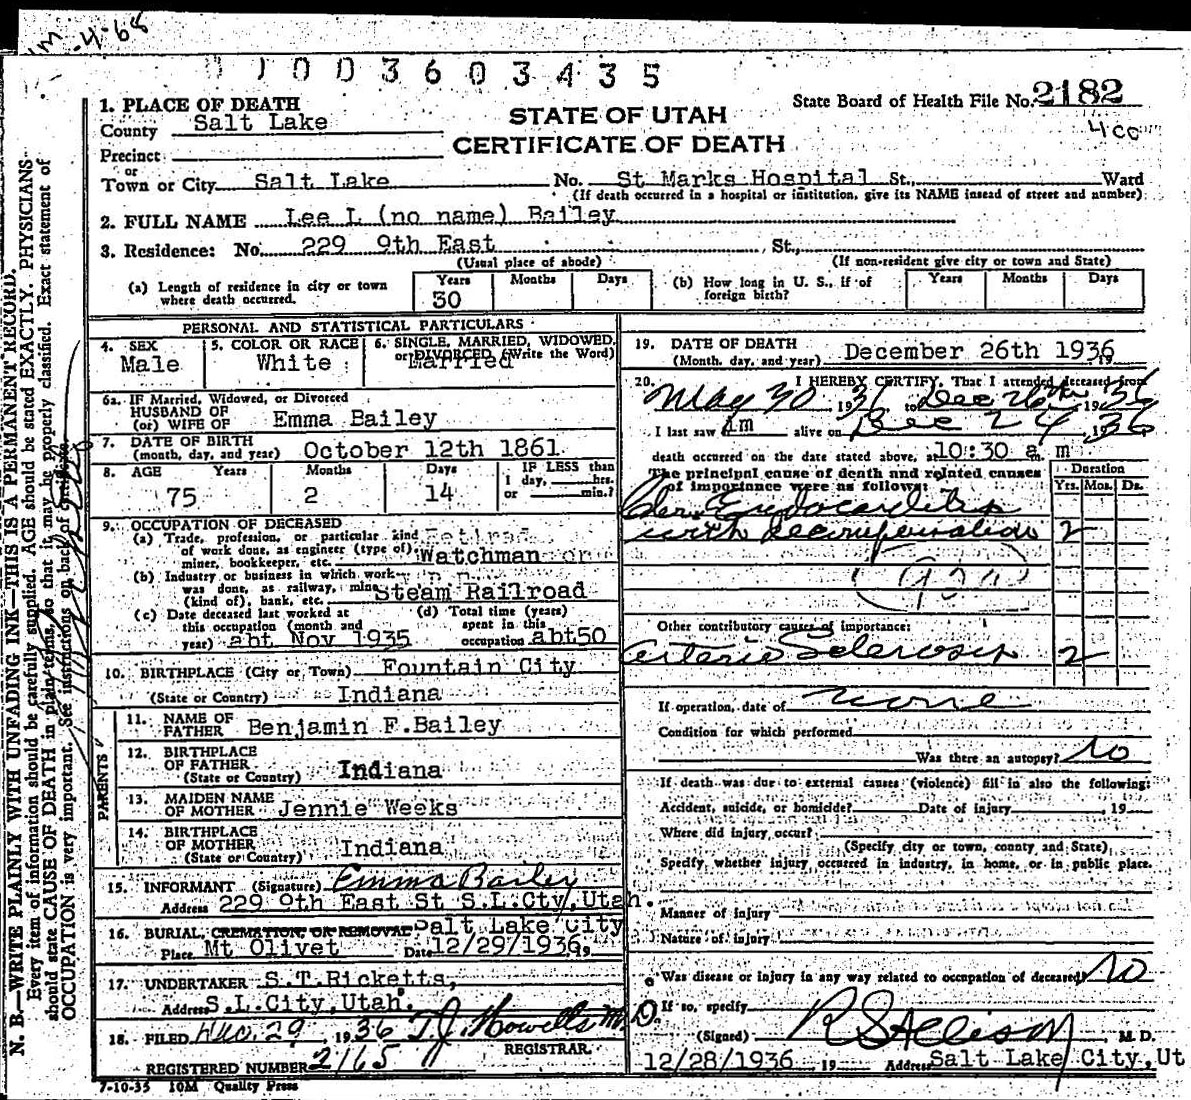 -4-68
1003603435
1. PLACE OF DEATH
County Salt Lake
Precinct
or
Town or City Salt Lake No. St Marks Hospital St., Ward
(If death occurred in a hospital or institution, give its NAME insead of street and number)
STATE OF UTAH
CERTIFICATE OF DEATH
State Board of Health File No. 2182
400
2. FULL NAME Lee L (no name) Bailey
3. Residence: No. 229 9th East St.,
(Usual place of abode) (If non-resident give city or town and State)
(a) Length of residence in city or town where death occurred. Years 30 Months Days
(b) How long in U. S., if of foreign birth? Years Months Days
PERSONAL AND STATISTICAL PARTICULARS
4. SEX Male
5. COLOR OR RACE White
6. SINGLE, MARRIED, WIDOWED, or DIVORCED (Write the Word) Married
6a. IF Married, Widowed, or Divorced
HUSBAND OF
(or) WIFE OF Emma Bailey
7. DATE OF BIRTH
(month, day, and year) October 12th 1861
8. AGE Years Months Days IF LESS than
1 day, hrs.
or min.?
75 2 14
9. OCCUPATION OF DECEASED
(a) Trade, profession, or particular kind
of work done, as engineer (type of), Watchman
miner, bookkeeper, etc.
(b) Industry or business in which work
was done, as railway, mine
(kind of), bank, etc. Steam Railroad
(c) Date deceased last worked at
this occupation (month and
year) abt Nov 1935
(d) Total time (years)
spent in this
occupation abt50
10. BIRTHPLACE (City or Town) Fountain City
(State or Country) Indiana
PARENTS
11. NAME OF
FATHER Benjamin F.Bailey
12. BIRTHPLACE
OF FATHER
(State or Country) Indiana
13. MAIDEN NAME
OF MOTHER Jennie Weeks
14. BIRTHPLACE
OF MOTHER
(State or Country) Indiana
15. INFORMANT (Signature) Emma Bailey
Address 229 9th East St S.L.Cty,Utah.
16. BURIAL, CREMATION OR REMOVAL Salt Lake City
Place Mt Olivet Date 12/29/1936, 19
17. UNDERTAKER S.T.Ricketts,
Address S.L.City,Utah.
18. FILED Dec. 29 1936 T.J. Howells M.D.
REGISTRAR.
REGISTERED NUMBER 2165
7-10-35 10M Quality Press
19. DATE OF DEATH
(Month, day, and year) December 26th 1936 19
20. I HEREBY CERTIFY, That I attended deceased from
May 30 1936 to Dec 26th 1936
I last saw him alive on Dec 24, 1936
death occurred on the date stated above, at 10:30 a. m
The principal cause of death and related causes
of importance were as follows: Duration
Yrs. Mos. Ds.
Chr. Endocarditis
with decompensation 2
Other contributory causes of importance:
Arterio Sclerosis 2
If operation, date of none
Condition for which performed
Was there an autopsy? No
If death was due to external causes (violence) fill in also the following:
Accident, suicide, or homicide? Date of injury 19
Where did injury occur?
(Specify city or town, county, and State)
Specify, whether injury occurred in industry, in home, or in public place.
Manner of injury
Nature of injury
Was disease or injury in any way related to occupation of deceased? No
If so, specify
(Signed) R S Allison M. D.
12/28/1936 19 Address Salt Lake City,Ut
N. B.—WRITE PLAINLY WITH UNFADING INK—THIS IS A PERMANENT RECORD.
Every item of information should be carefully supplied. AGE should be stated EXACTLY. PHYSICIANS
should state CAUSE OF DEATH in plain terms, so that it may be properly classified. Exact statement of
OCCUPATION is very important. See instructions on back of